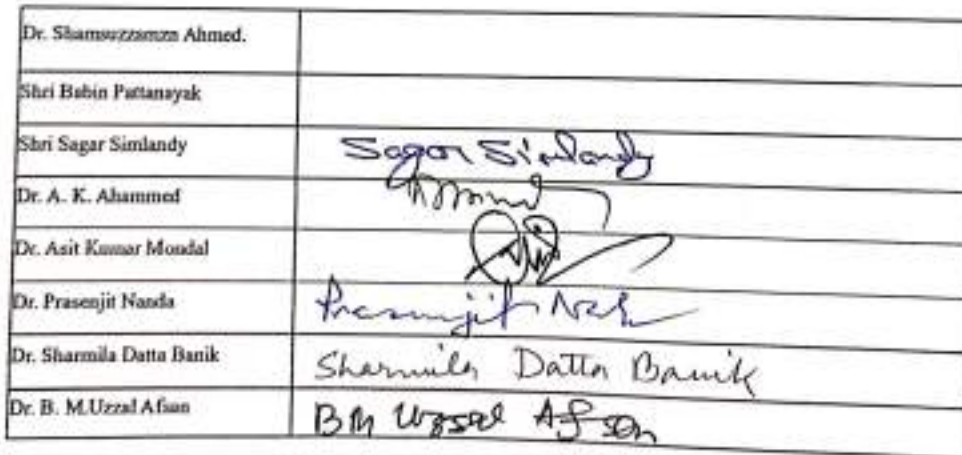 Dr. Shamsuzzaman Ahmed.
Shri Babin Pattanayak
Shri Sagar Simlandy Sagar Simlandy
Dr. A. K. Ahammed
Dr. Asit Kumar Mondal
Dr. Prasenjit Nanda Prasenjit
Dr. Sharmila Datta Banik Sharmila Datta Banik
Dr. B. M.Uzzal Afsan BM Uzzal Afsan